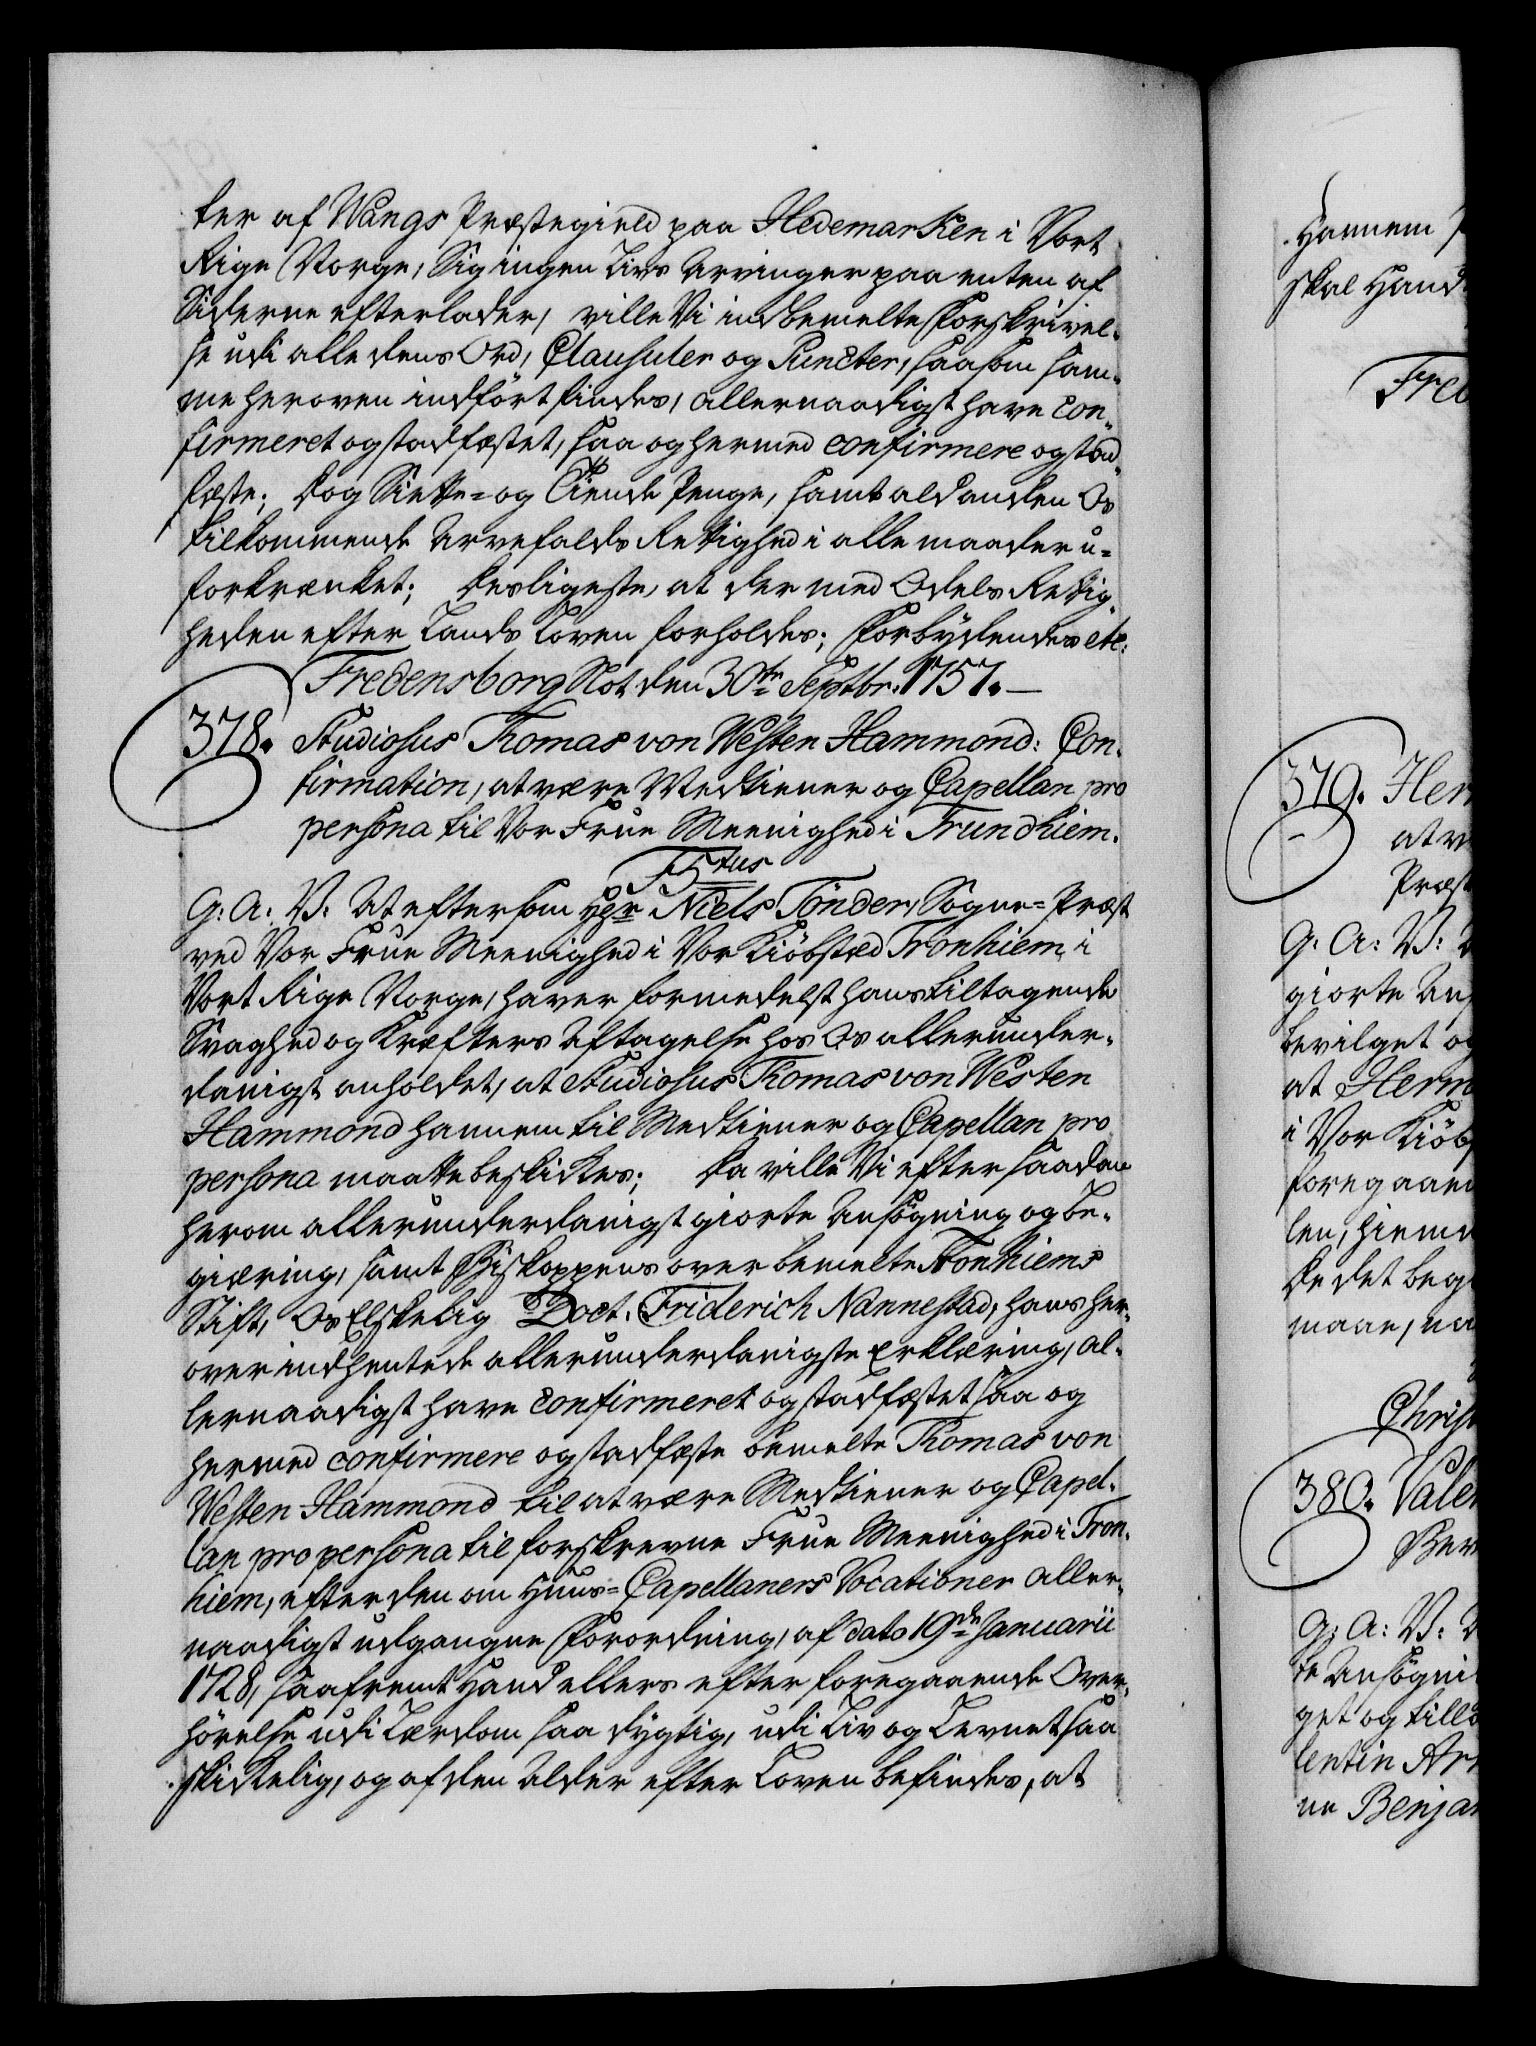 ter af Wangs Præstegield paa Hedemarken i Vort
Rige Norge, Sig ingen Livs Arvinger paa enten af
Siderne efterlader, ville Vi indbemelte Forskrivel-
se udi alle dens Ord, Clausuler og Puncter, saasom sam-
me heroven indført findes, allernaadigst have con-
firmeret og stadfæstet, saa og hermed confirmere og stad-
fæste; dog Siette- og Tiende Penge, samt ald anden Os
tilkommende Arvefalds Rettighed i alle maader u-
forkrænket; desligeste, at der med Odels Rettig-
heden efter Lands Loven forholdes; Forbydendes etc:
Fredensborg Slot den 30te Septbr. 1757.
378. Studiosus Thomas von Westen Hammond: Con-
firmation, at være Medtiener og Capellan pro
persona til Vor Frue Meenighed i Trundhiem.
F5tus
G: A: V: At eftersom Hr Niels Tönder, Sogne-Præst
ved Vor Frue Meenighed i Vor Kiöbsted Tronhiem, i
Vort Rige Norge, haver formedelst hans tiltagende
Svaghed og Kræfters Aftagelse hos Os allerunder-
danigst anholdet, at Studiosus Thomas von Westen
Hammond hannem til Medtiener og Capellan pro
persona maatte beskickes; da ville Vi efter saadan
herom allerunderdanigst giorte Ansögning og Be-
giæring, samt Biskoppens over bemelte Tronhiems
Stift, Os Elskelig Doct. Friderich Nannestad, hans her-
over indhentede allerunderdanigste Erklæring, al-
lernaadigst have confirmeret og stadfæstet saa og
hermed confirmere og stadfæste bemelte Thomas von
Westen Hammond til at være Medtiener og Capel-
lan pro persona til forskrevne Frue Meenighed i Tron-
hiem, efter den om Huus-Capellaners Vocationer aller-
naadigst udgangne Forordning, af dato 19de Januarii
1728, saafremt Hand ellers efter foregaaende Over-
hörelse udi Lærdom saa dygtig, udi Liv og Levnet saa
skickelig, og af den Alder efter Loven befindes, at
Hannem
skal Hand
379.
at v
Præst
G: A: V:
giorte
bevilget og
at Herm
i Vor Kiöb
foregaaen
len, hiem
de det beg
maae, na
380.
G: A: V:
te Ansögni
get og till
lentin
ne Benja